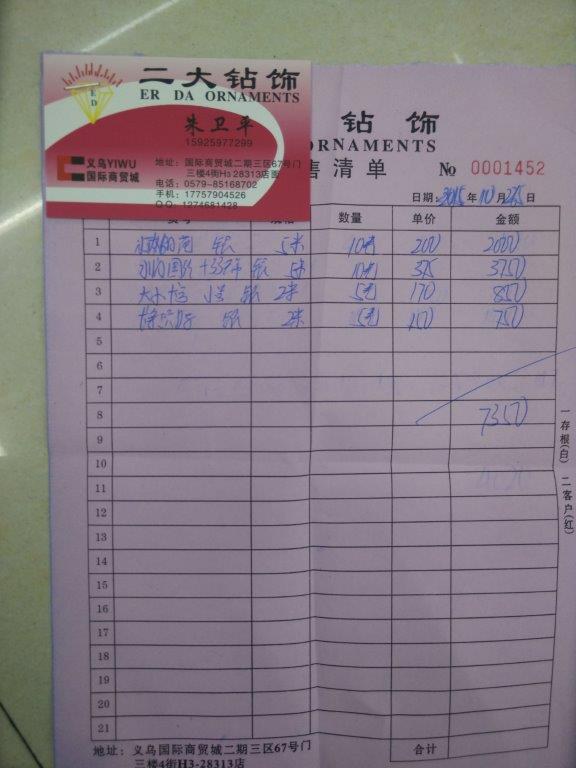 二大钻饰
ER DA ORNAMENTS
朱卫平
15925977299
ED
义乌YIWU
国际商贸城
地址：国际商贸城二期三区67号门
三楼4街H3 28313店面
电话：0579-85168702
手机：17757904526
QQ：1274681428
钻饰
ORNAMENTS
售清单 No 0001452
日期：2015年10月25日
数量 单价 金额
1 钻 5米 10 200 2000
2 钻 5米 10 375 3750
3 钻 2米 5 170 850
4 钻 2米 5 150 750
5
6
7
8 7350
9
10
11
12
13
14
15
16
17
18
19
20
21
合计
一存根(白) 二客户(红)
地址：义乌国际商贸城二期三区67号门
三楼4街H3-28313店